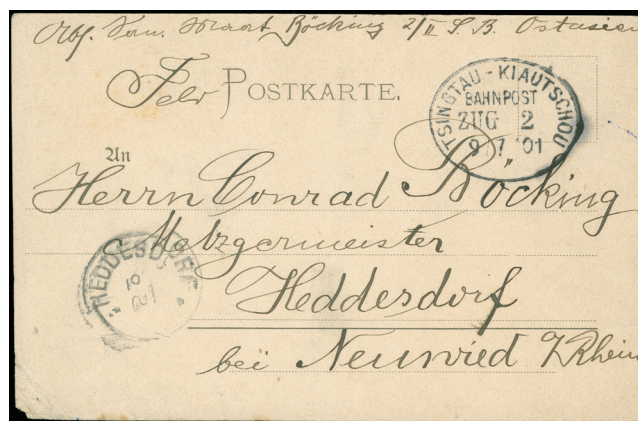 Abs. Böcking 2/II S. B. Ostasien
Feld POSTKARTE.
TSINGTAU - KIAUTSCHOU
BAHNPOST
ZUG 2
9 7 01
An
Herrn Conrad Böcking
Metzgermeister
HEDDESDORF
Heddesdorf
bei Neuwied a/Rhein